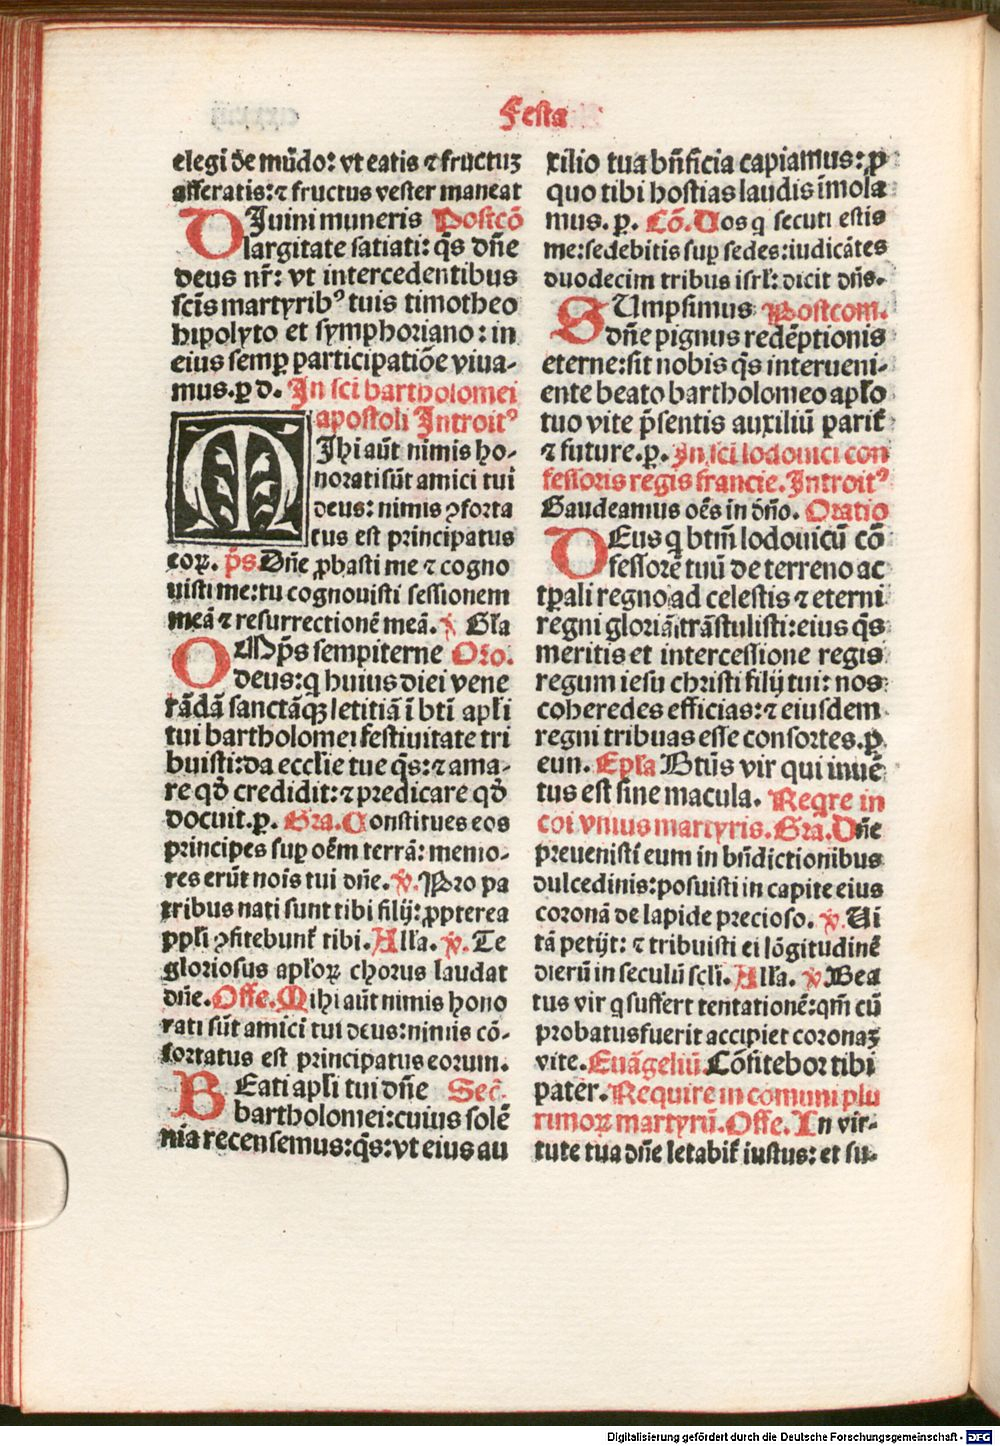 Festa
elegi de mūdo: vt eatis ⁊ fructuꝫ
afferatis: ⁊ fructus vester maneat
DIuini muneris Postcō
largitate satiati: q̄s dn̄e
deus nr̄: vt intercedentibus
scīs martyribꝰ tuis timotheo
hipolyto et symphoriano: in
eius semꝑ participatiōe viua-
mus. ꝑ d. In sci bartholomei
apostoli Introitꝰ
MIhi aūt nimis ho-
norati sūt amici tui
deus: nimis ꝯforta
tus est principatus
eoꝝ. p̄s. Dn̄e ꝓbasti me ⁊ cogno
uisti me: tu cognouisti sessionem
meā ⁊ resurrectionē meā. ℣ Gl̄a
OMp̄s sempiterne Oro.
deus: q huius diei vene
rādā sanctāqꝫ letitiā ī btī apl̄i
tui bartholomei festiuitate tri
buisti: da eccl̄ie tue q̄s: ⁊ ama-
re qd̄ credidit: ⁊ predicare qd̄
docuit. ꝑ. Gra. Constitues eos
principes suꝑ oēm terrā: memo-
res erūt nois tui dn̄e. ℣. Pro pa
tribus nati sunt tibi filij: ꝓpterea
ppl̄i ꝯfitebunt᷑ tibi. All̄a. ℣. Te
gloriosus apl̄oꝝ chorus laudat
dn̄e. Offe. Mihi aūt nimis hono
rati sūt amici tui deus: nimis cō-
fortatus est principatus eorum.
BEati apl̄i tui dn̄e Sec̄.
bartholomei: cuius solē
nia recensemus: q̄s: vt eius au
xilio tua bn̄ficia capiamus: ꝓ
quo tibi hostias laudis īmola
mus. ꝑ. Cō. Uos q secuti estis
me: sedebitis suꝑ sedes: iudicātes
duodecim tribus isrl̄: dicit dn̄s.
SUmpsimus Postcom.
dn̄e pignus redēptionis
eterne: sit nobis q̄s interueni-
ente beato bartholomeo apl̄o
tuo vite p̄sentis auxiliū parit᷑
⁊ future. ꝑ. In sci lodouici con
fessoris regis francie. Introitꝰ
Gaudeamus oēs in dn̄o. Oratio
DEus q btm̄ lodouicū cō
fessorē tuū de terreno ac
tꝑali regno ad celestis ⁊ eterni
regni gloriā trāstulisti: eius q̄s
meritis et intercessione regis
regum iesu christi filij tui: nos
coheredes efficias: ⁊ eiusdem
regni tribuas esse consortes. ꝑ
eun. Epl̄a Btūs vir qui inuē
tus est sine macula. Reqre in
coi vnius martyris. Gra. Dn̄e
preuenisti eum in bn̄dictionibus
dulcedinis: posuisti in capite eius
coronā de lapide precioso. ℣. Ui
tā petijt: ⁊ tribuisti ei lōgitudinē
dierū in seculū scl̄i. All̄a. ℣ Bea
tus vir q suffert tentationē: qm̄ cū
probatus fuerit accipiet coronaꝫ
vite. Euāgeliū. Cōfitebor tibi
pater. Require in comuni plu
rimoꝝ martyrū. Offe. In vir-
tute tua dn̄e letabit᷑ iustus: et su-
Digitalisierung gefördert durch die Deutsche Forschungsgemeinschaft - DFG